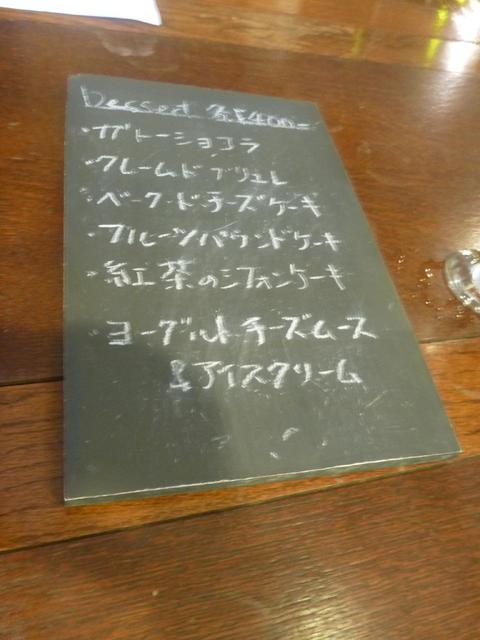 Dessert 各¥400-
・ガトーショコラ
・クレームドブリュレ
・ベークドチーズケーキ
・フルーツパウンドケーキ
・紅茶のシフォンケーキ
・ヨーグルトチーズムース
&アイスクリーム